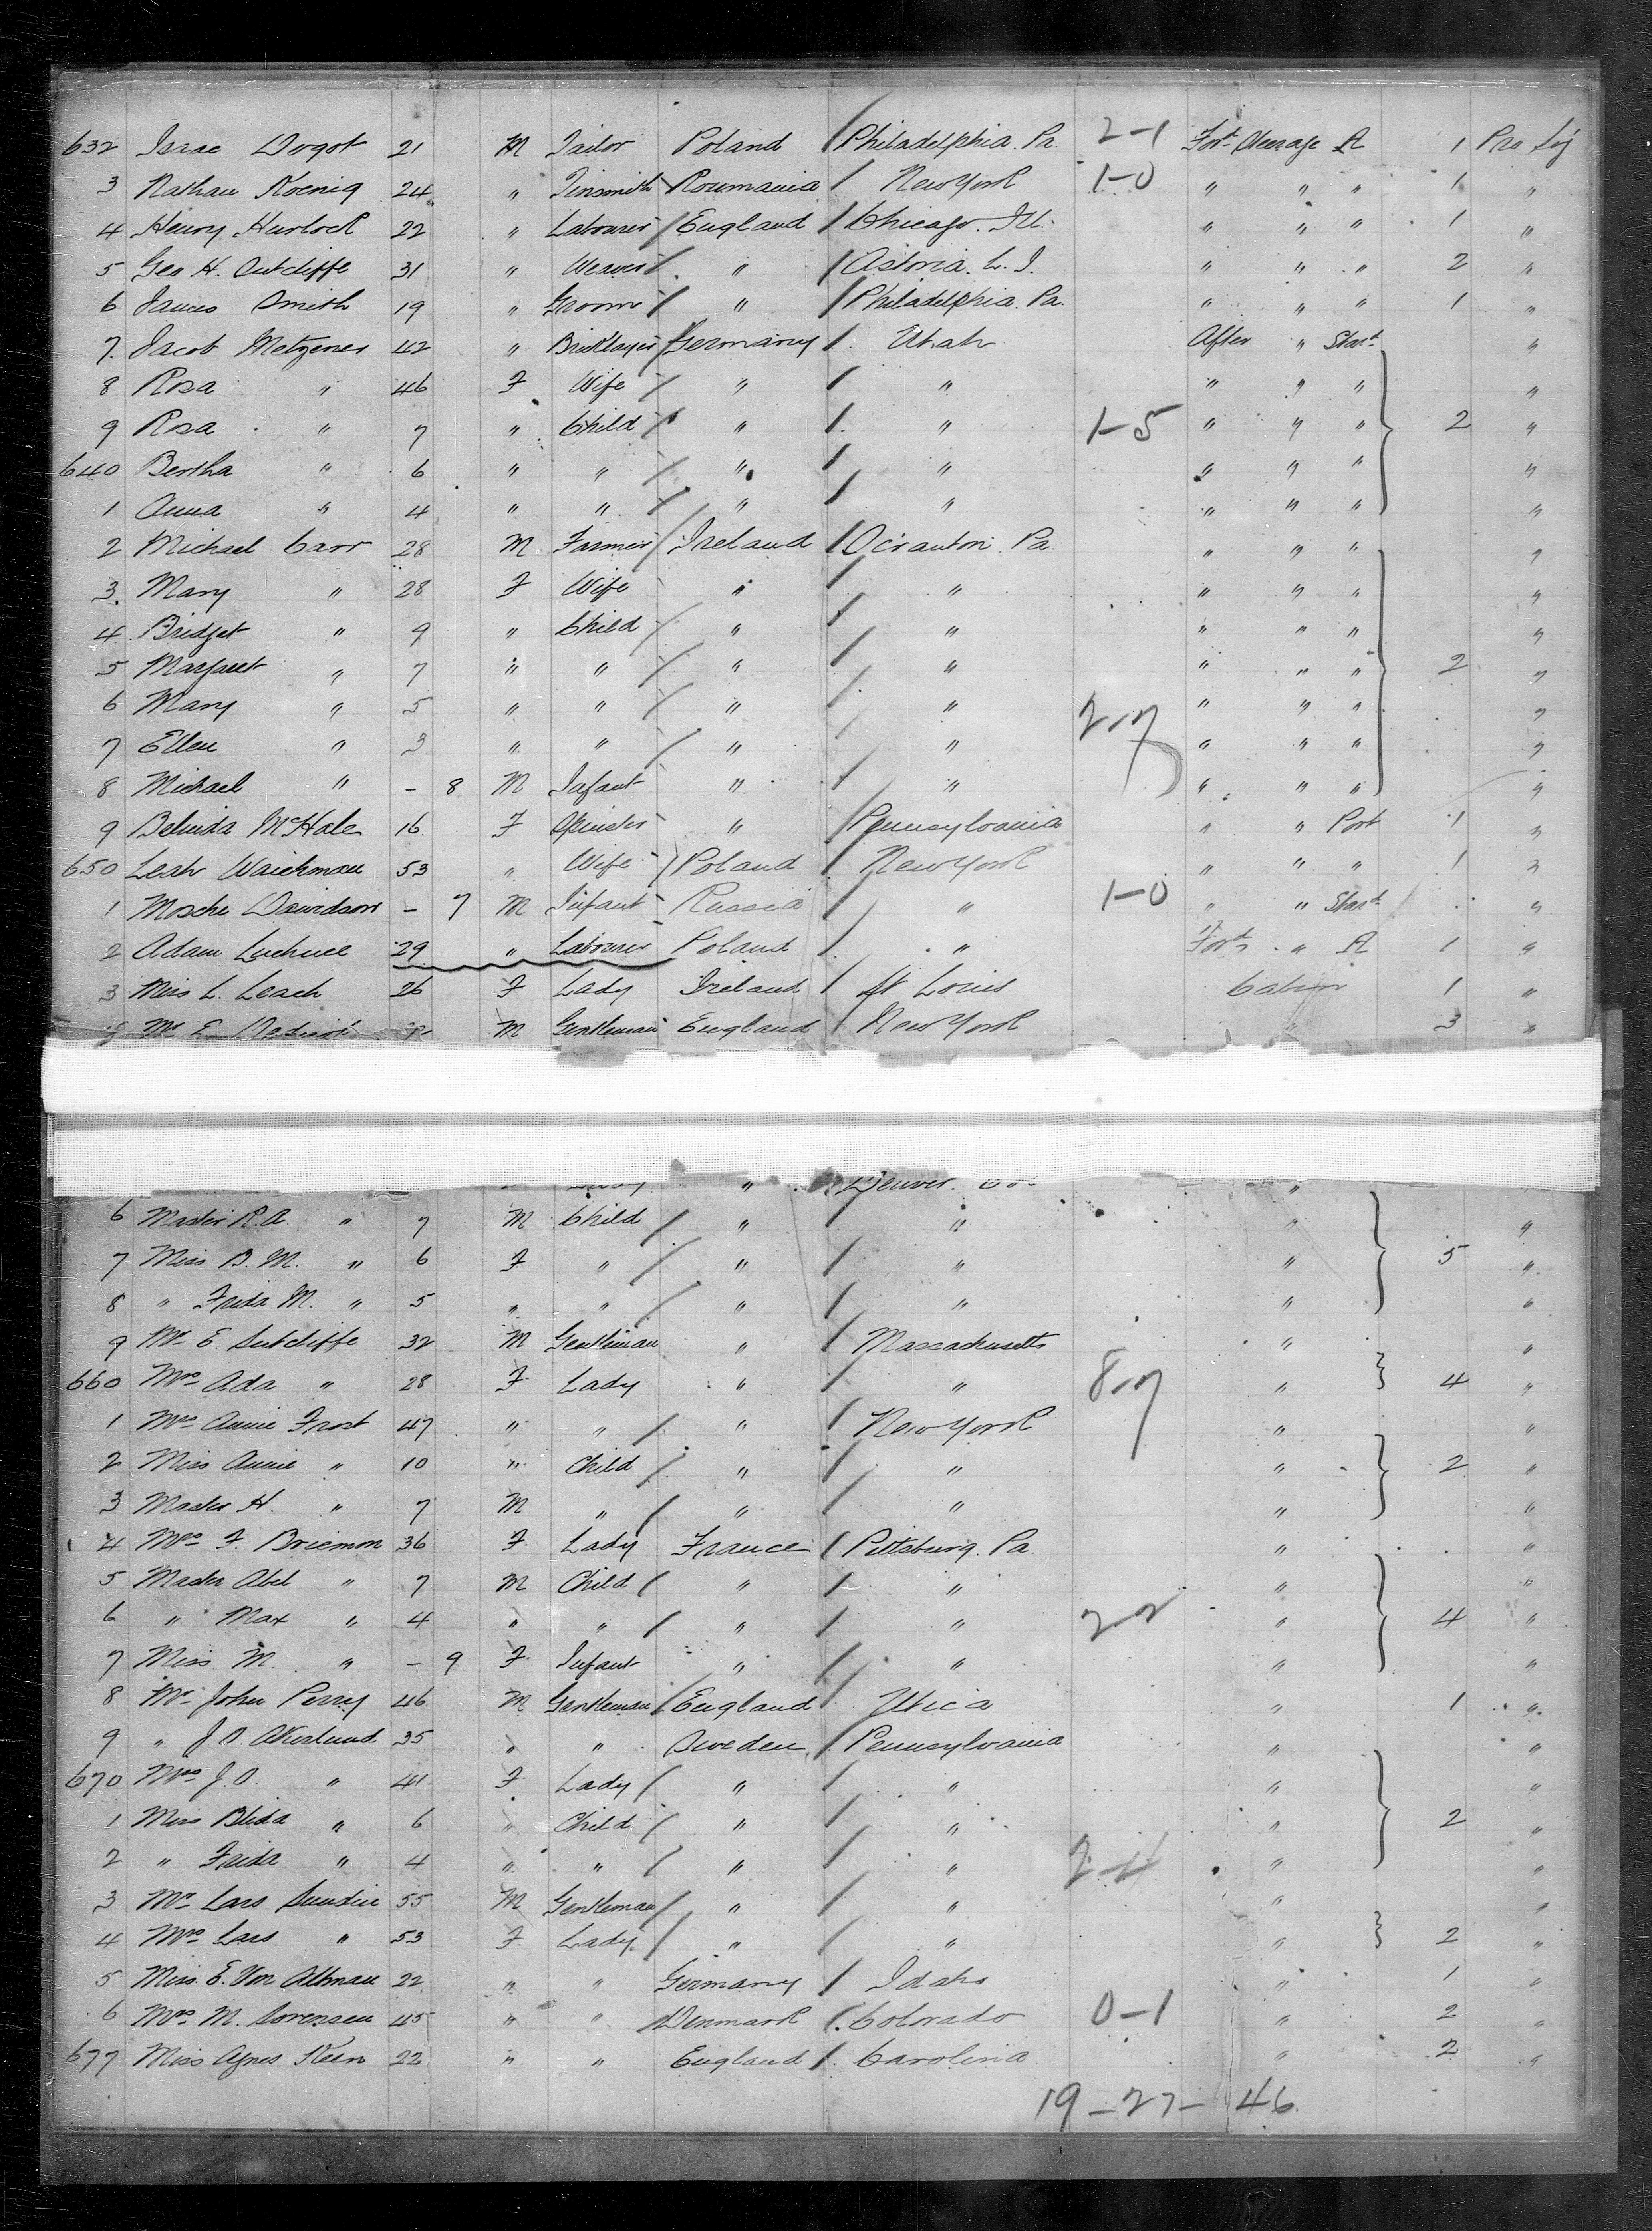 632 Isaac Dogot 21 M Tailor Poland Philadelphia. Pa. 2-1 For'd Steerage A 1 Pro Sej
3 Nathan Koenig 24 " Tinsmith Roumania New York 1-0 " " " 1 "
4 Henry Hurlock 22 " Labourer England Chicago. Ill. " " " 1 "
5 Geo H. Sutcliffe 31 " Weaver " Astoria. L. I. " " " 2 "
6 James Smith 19 " Groom " Philadelphia. Pa. " " " 1 "
7 Jacob Metzener 42 " Bricklayer Germany Utah After " Star'd "
8 Rosa " 46 F Wife " " " " " "
9 Rosa " 7 " Child " " 1-5 " " " 2 "
640 Bertha " 6 " " " " " " " "
1 Anna " 4 " " " " " " " "
2 Michael Carr 28 M Farmer Ireland Scranton Pa. " " " "
3 Mary " 28 F Wife " " " " " "
4 Bridget " 9 " Child " " " " " "
5 Margaret " 7 " " " " " " " 2 "
6 Mary " 5 " " " " 2-7 " " " "
7 Ellen " 3 " " " " " " " "
8 Michael " - 8 M Infant " " " " " "
9 Belinda McHale 16 F Spinster " Pennsylvania " " Port 1 "
650 Leah Waichman 53 " Wife Poland New York " " " 1 "
1 Mosche Davidson - 7 M Infant Russia " 1-0 " " Star'd "
2 Adam 29 " Labourer Poland " For'd " A 1 "
3 Miss L. Leach 26 F Lady Ireland St Louis Cabin 1 "
Mr E M Gentleman England New York " 3 "
" Denver. "
6 Master R. A " 7 M Child " " " "
7 Miss B. M. " 6 F " " " " 5 "
8 " Frida M. " 5 " " " " " "
9 Mr E. Sutcliffe 32 M Gentleman " Massachusetts " "
660 Mrs Ada " 28 F Lady " " 8-7 " 4 "
1 Mrs Annie Frost 47 " " " New York " "
2 Miss Annie " 10 " Child " " " 2 "
3 Master H. " 7 M " " " " "
4 Mrs F. Briemon 36 F Lady France Pittsburg. Pa " "
5 Master Abel " 7 M Child " " " "
6 " Max " 4 " " " " 2-2 " 4 "
7 Miss M. " - 9 F Infant " " " "
8 Mr John Perry 46 M Gentleman England Utica " 1 "
9 " J. O. Akerlund 35 " " Sweden Pennsylvania " "
670 Mrs J. O. " 41 F Lady " " " "
1 Miss Blida " 6 " Child " " " 2 "
2 " Frida " 4 " " " " " "
3 Mr Lars Sundin 55 M Gentleman " " " "
4 Mrs Lars " 53 F Lady " " " 2 "
5 Miss E. Von Altman 22 " " Germany Idaho " 1 "
6 Mrs M. Sorensen 45 " " Denmark Colorado 0-1 " 2 "
677 Miss Agnes Keen 22 " " England Carolina " 2 "
19-27-46